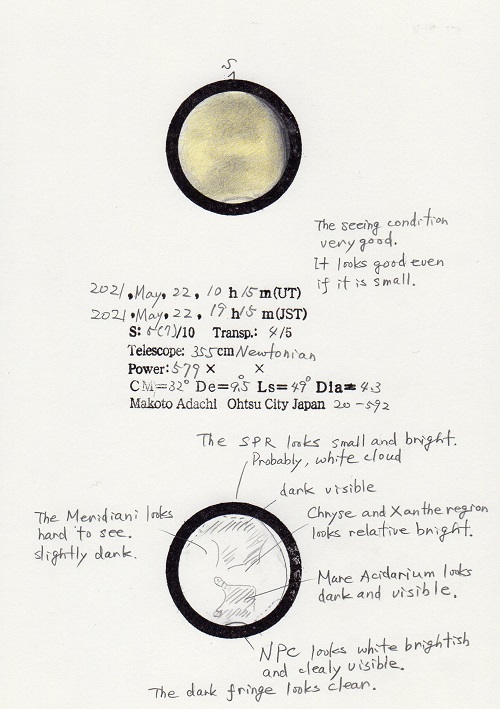 S
The seeing condition
very good.
It looks good even
if it is small.
2021, May, 22, 10 h 15 m (UT)
2021, May, 22, 19 h 15 m (JST)
S: 6(7)/10 Transp.: 4/5
Telescope: 355cm Newtonian
Power: 579 × ×
CM=32° De=9.5° Ls=49° Dia= 4.3
Makoto Adachi Ohtsu City Japan 20-592
The SPR looks small and bright.
Probably, white cloud
dark visible
The Meridiani looks
hard to see.
slightly dark.
Chryse and Xanthe region
looks relative bright.
Mare Acidarium looks
dark and visible.
NPC looks white brightish
and clealy visible.
The dark fringe looks clear.